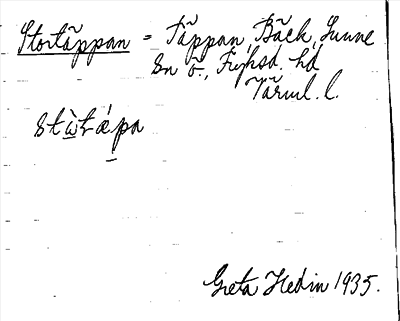 Stortäppan = Täppan, Bäck, Sunne
sn ö., Fryksd. hd
Värml. l.
stẁtǽpa
Greta Hedin 1935.